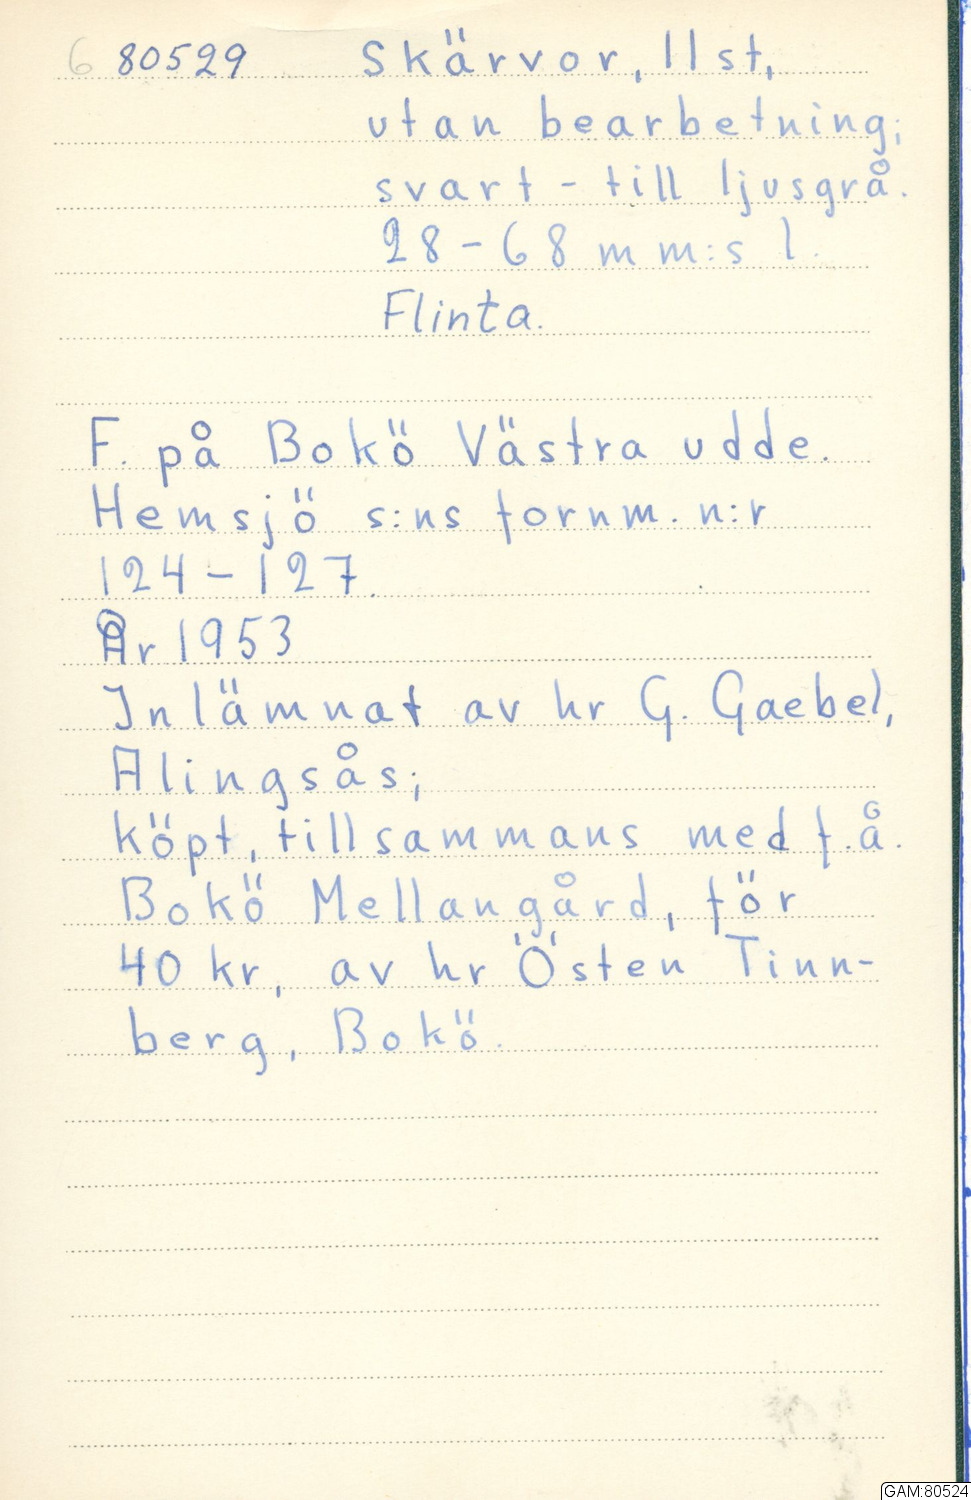 6 80529 Skärvor, 11 st,
utan bearbetning;
svart - till ljusgrå.
28-68 mm:s l.
Flinta.
F. på Bokö Västra udde.
Hemsjö s:ns fornm. n:r
124-127.
År 1953
Inlämnat av hr G. Gaebel,
Alingsås;
köpt, tillsammans med f.å.
Bokö Mellangård, för
40 kr, av hr Östen Tinn-
berg, Bokö.
GAM:80524